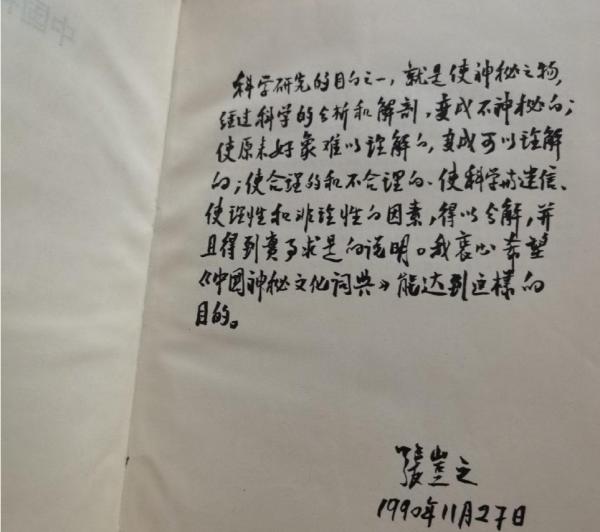 科学研究的目的之一，就是使神秘之物，
经过科学的分析和解剖，变成不神秘的；
使原来好象难以诠解的，变成可以诠解
的；使合理的和不合理的、使科学与迷信、
使理性和非理性的因素，得以分解，并
且得到实事求是的说明。我衷心希望
《中国神秘文化词典》能达到这样的
目的。
张岂之
1990年11月27日
中国